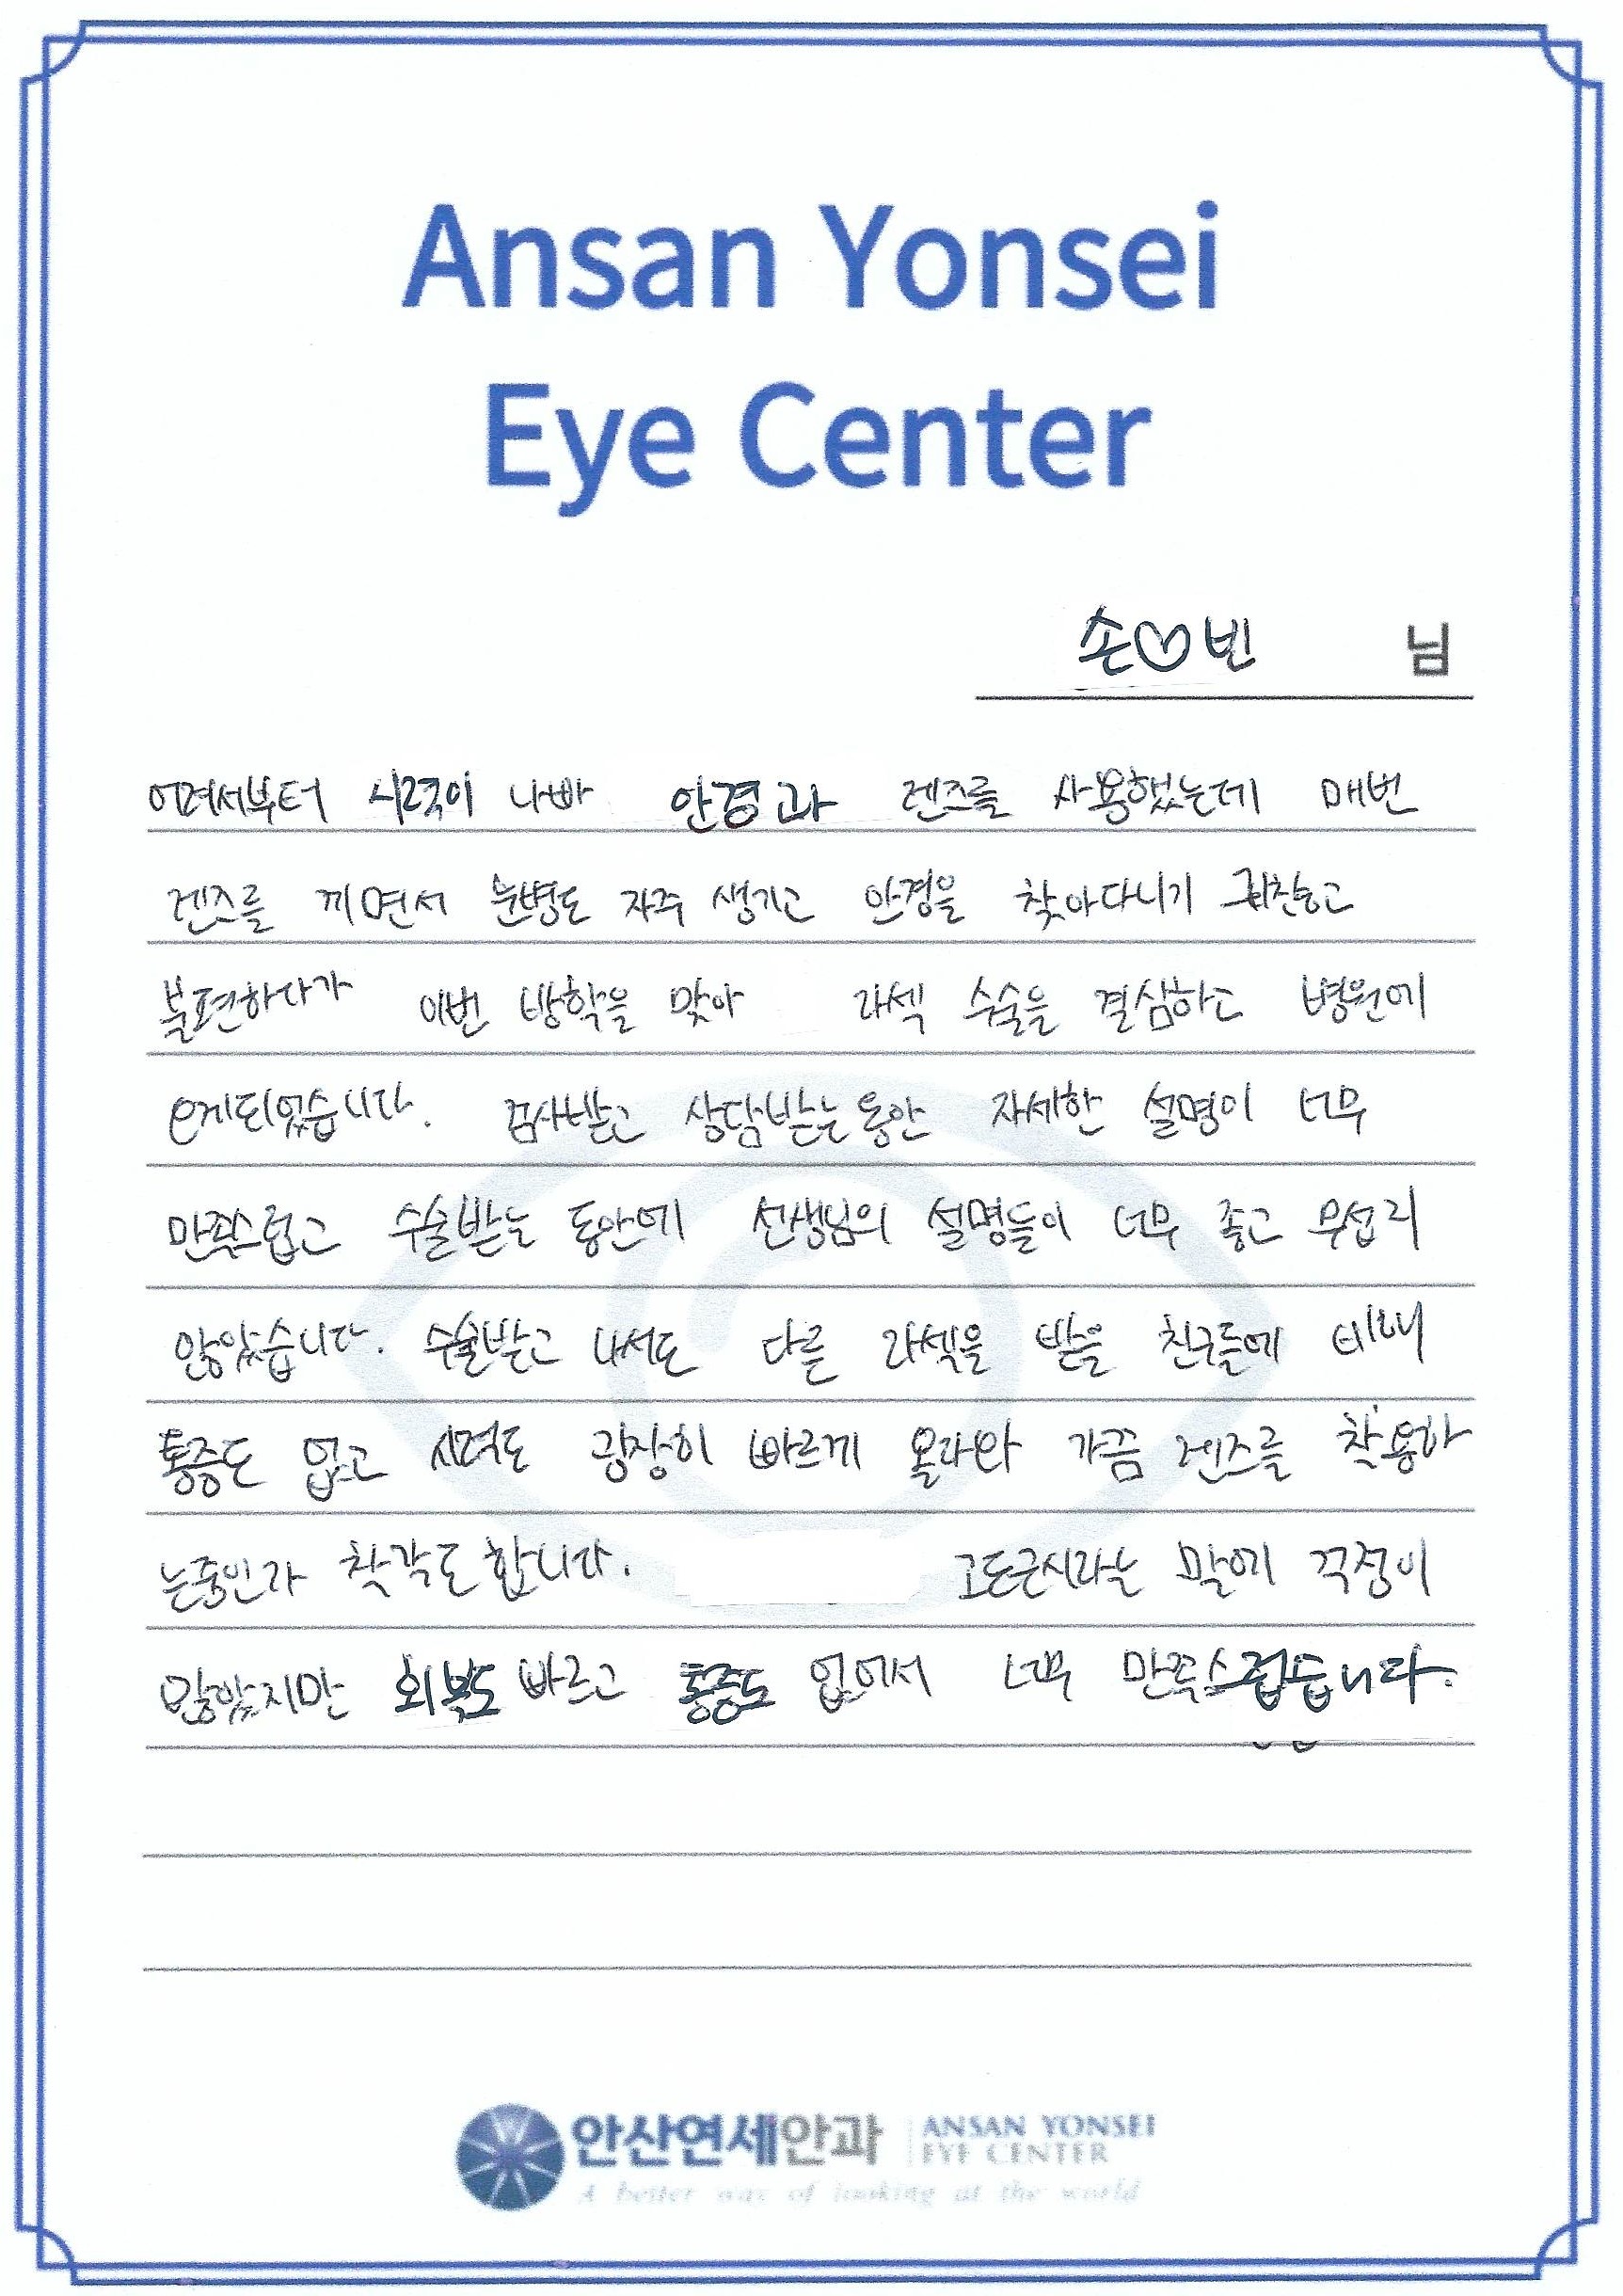 Ansan Yonsei
Eye Center
손♡빈 님
어려서부터 시력이 나빠 안경과 렌즈를 사용했는데 매번
렌즈를 끼면서 눈병도 자주 생기고 안경을 찾아다니기 귀찮고
불편하다가 이번 방학을 맞아 라섹 수술을 결심하고 병원에
오게되었습니다. 검사받고 상담받는동안 자세한 설명이 너무
만족스럽고 수술받는 동안에 선생님의 설명들이 너무 좋고 무섭지
않았습니다. 수술받고 나서도 다른 라섹을 받을 친구들에 비해
통증도 없고 시력도 굉장히 빠르게 올라와 가끔 렌즈를 착용하
는중인가 착각도 합니다. 고도근시라는 말에 걱정이
많았지만 회복도 빠르고 통증도 없어서 너무 만족스럽습니다.
안산연세안과 ANSAN YONSEI
EYE CENTER
A better way of looking at the world